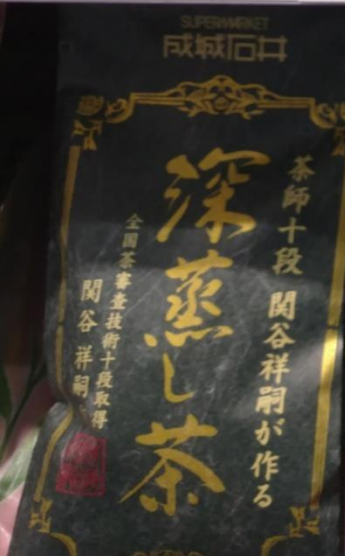 SUPERMARKET
成城石井
茶師十段 関谷祥嗣が作る
深蒸し茶
全国茶審査技術十段取得
関谷 祥嗣